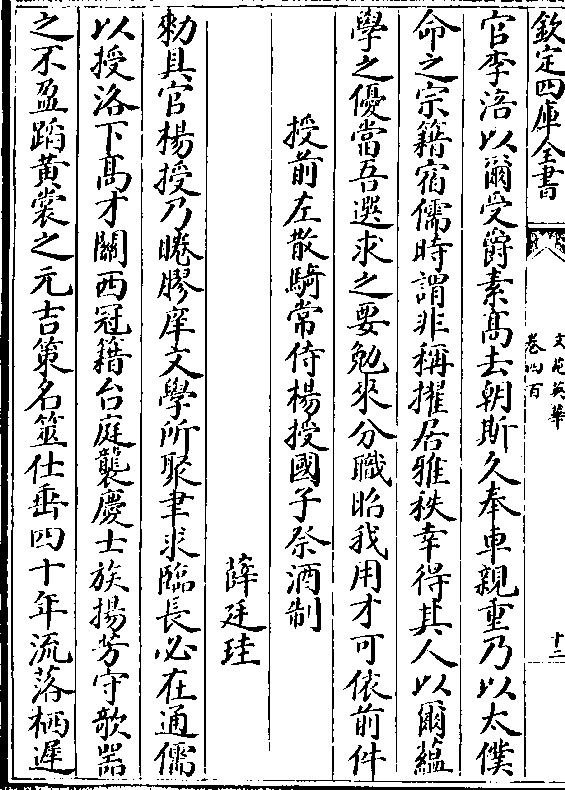 欽定四庫全書
文苑英華
卷四百
十二
官李涪以爾受爵素髙去朝斯久奉車親重乃以太僕
命之宗籍宿儒時謂非稱擢居雅秩幸得其人以爾藴
學之優當吾選求之要勉來分職昭我用才可依前件
授前左散騎常侍楊授國子祭酒制
薛廷珪
勅具官楊授乃睠膠庠文學所聚聿求臨長必在通儒
以授洛下髙才關西冠籍台庭襲慶士族揚芳守欹器
之不盈蹈黄裳之元吉策名筮仕垂四十年流落栖遲